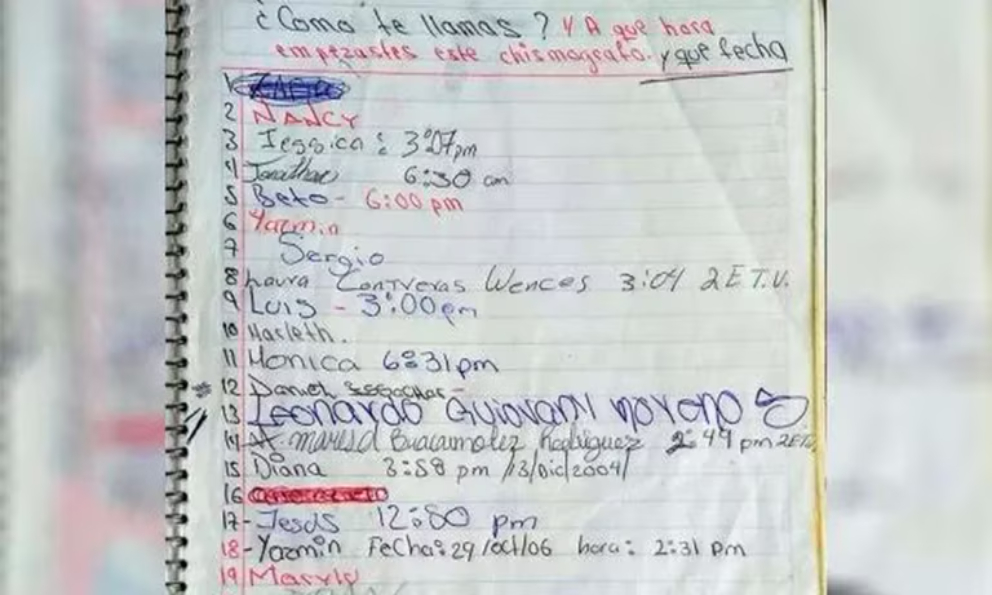 ¿Como te llamas? Y A que hora
empezastes este chismografo. y que fecha
1
2 NANCY
3 Jessica: 3:07pm
4 Jonathan 6:30 am
5 Beto - 6:00 pm
6 Yazmin
7 Sergio
8 Laura Contreras Wences 3:04 2E T.V.
9 Luis - 3:00pm
10 Hasleth.
11 Monica 6:31pm
12 Daniel Escobar -
13 Leonardo Guiovani moreno S
14 A. marisol Rodriguez 2:49 pm
15 Diana 3:58 pm /13/Dic/2004/
16
17- Jesús 12:50 pm
18- Yazmin FeCha: 29/oct/06 hora: 2:31 pm
19 Maryly